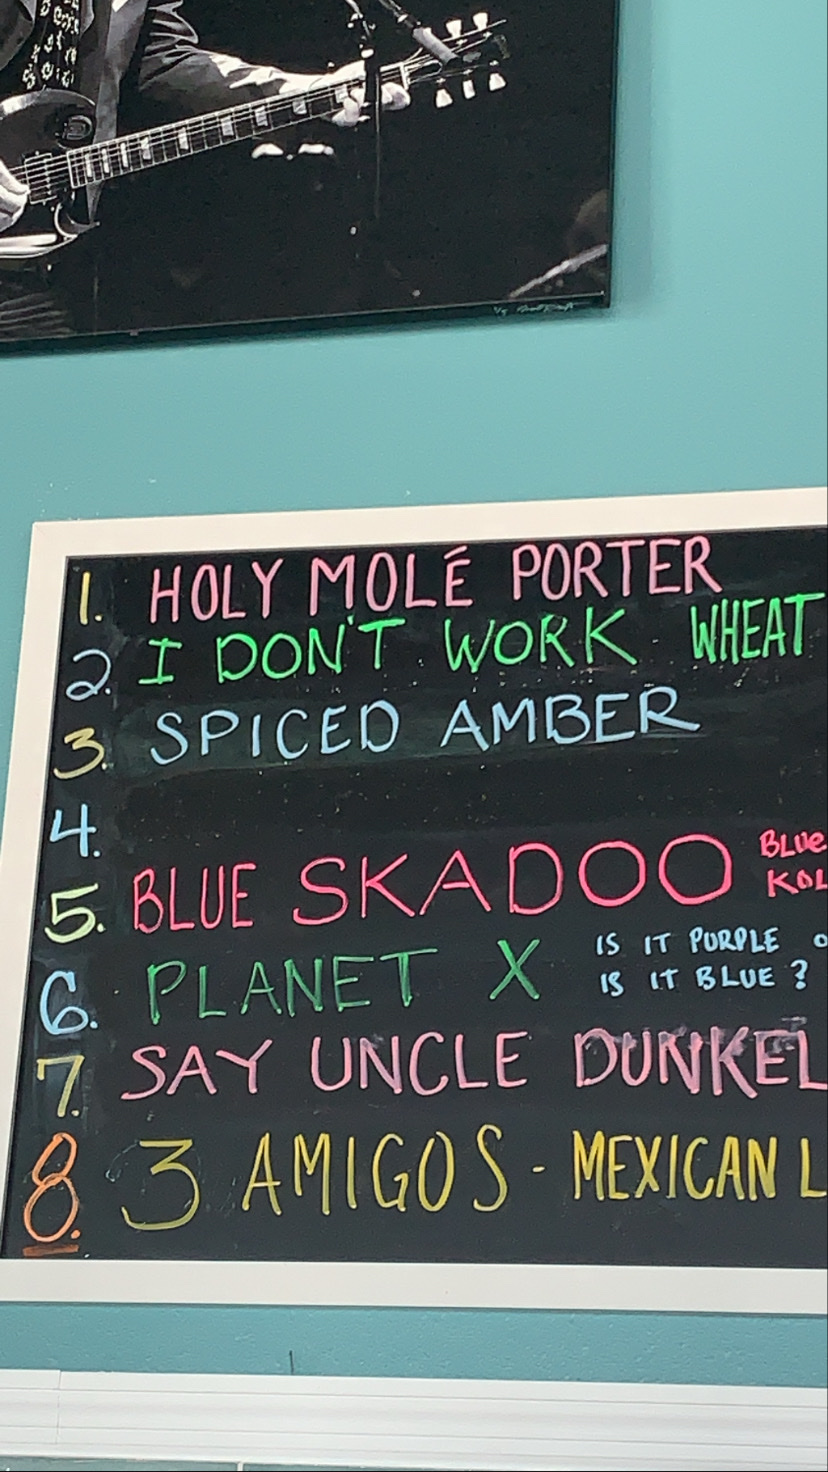 1. HOLY MOLÉ PORTER
2. I DON'T WORK WHEAT
3. SPICED AMBER
4.
5. BLUE SKADOO BLUE
KOL
6. PLANET X IS IT PURPLE O
IS IT BLUE ?
7. SAY UNCLE DUNKEL
8. 3 AMIGOS - MEXICAN L